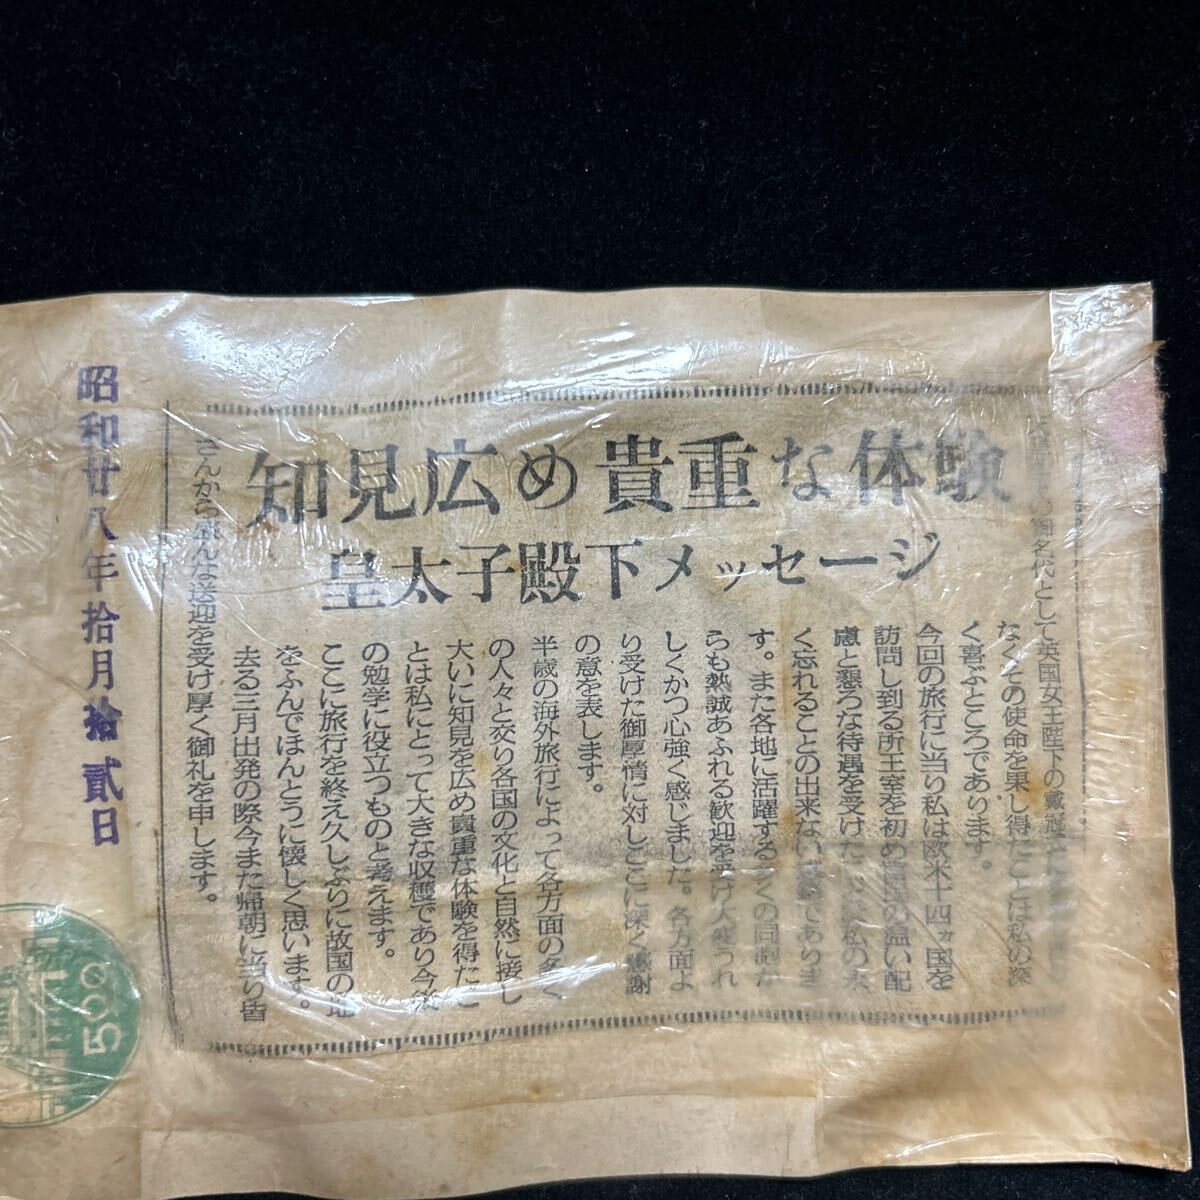 知見広め貴重な体験
皇太子殿下メッセージ
い御名代として英国女王陛下の戴冠
なくその使命を果し得たことは私の深
く喜ぶところであります。
今回の旅行に当り私は欧米十四ヵ国を
訪問し到る所王室を初め国民の温い配
慮と懇ろな待遇を受けた 私の永
く忘れることの出来ない であります
す。また各地に活躍する多くの同胞か
らも熱誠あふれる歓迎を受け大変うれ
しくかつ心強く感じました。各方面よ
り受けた御厚情に対しここに深く感謝
の意を表します。
半歳の海外旅行によって各方面の多く
の人々と交り各国の文化と自然に接し
大いに知見を広め貴重な体験を得たこ
とは私にとって大きな収穫であり今後
の勉学に役立つものと考えます。
ここに旅行を終え久しぶりに故国の地
をふんでほんとうに懐しく思います。
去る三月出発の際今また帰朝に当り皆
さんから盛んな送迎を受け厚く御礼を申します。
昭和廿八年拾月拾貳日
500